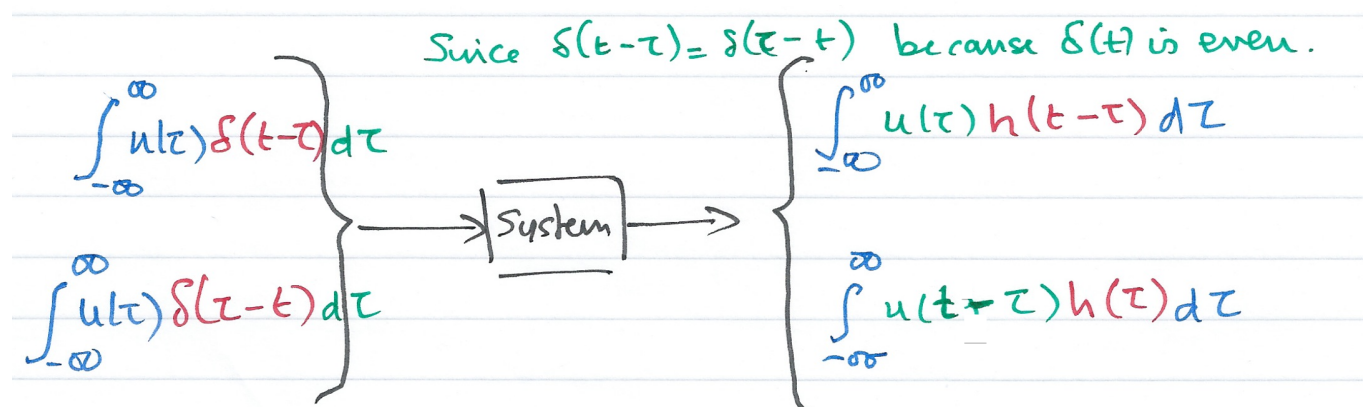 Since δ(t-τ)= δ(τ-t) because δ(t) is even.
∫_{-∞}^{∞} u(τ) δ(t-τ) dτ
∫_{-∞}^{∞} u(τ) h(t-τ) dτ
System
∫_{-∞}^{∞} u(τ) δ(τ-t) dτ
∫_{-∞}^{∞} u(t-τ) h(τ) dτ